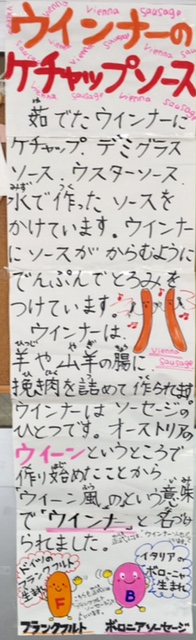 ウインナーの
ケチャップソース
vienna sausage
茹でたウインナーに
ケチャップ、デミグラス
ソース、ウスターソース
水で作ったソースを
かけています。ウインナー
にソースがからむように
でんぷんでとろみを
つけています。
ウインナーは、
vienna sausage
羊や山羊の腸に
挽き肉を詰めて作られます
ウインナーはソーセージの
ひとつです。オーストリアの
ウィーンというところで
作り始めたことから
"ウィーン風"のという意味
で"ウインナー"と名づけ
られました。
ドイツの
フランクフルト
生まれ
F
フランクフルト
イタリアの
ボローニャ
生まれ
B
ボロニアソーセージ